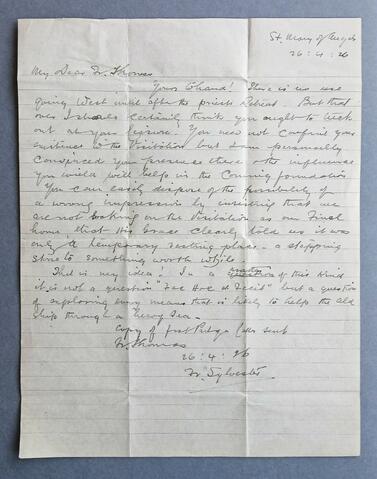 St. Mary of Angels
26:4:26
My Dear Fr. Thomas
Yours to hand! There is no use
going West until after the priests Retreat. But that
over I should certainly think you ought to trek
out at your leisure. You need not confine your
energies to the Visitation but I am personally
convinced your presence there & the influence
you wield will help in the Coming foundation.
You can easily dispose of the possibility of
a wrong impression by insisting that we
are not looking on the Visitation as our final
home, that His Grace clearly told us it was
only a temporary resting place - a stepping
stone to something worth while.
That is my idea! In a matter of this kind
it is not a question "Fac Hoc et" but a question
of exploring every means that is likely to help the old
ship through a heavy Sea.
Copy of first letter sent
Fr. Thomas
26:4:26
Fr. Sylvester